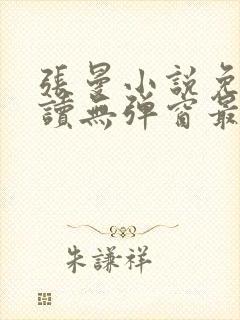 張曼小說免
讀無彈窗最
朱謙祥